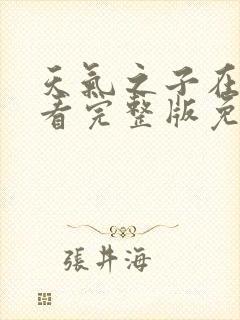 天氣之子在
看完整版免
張井海